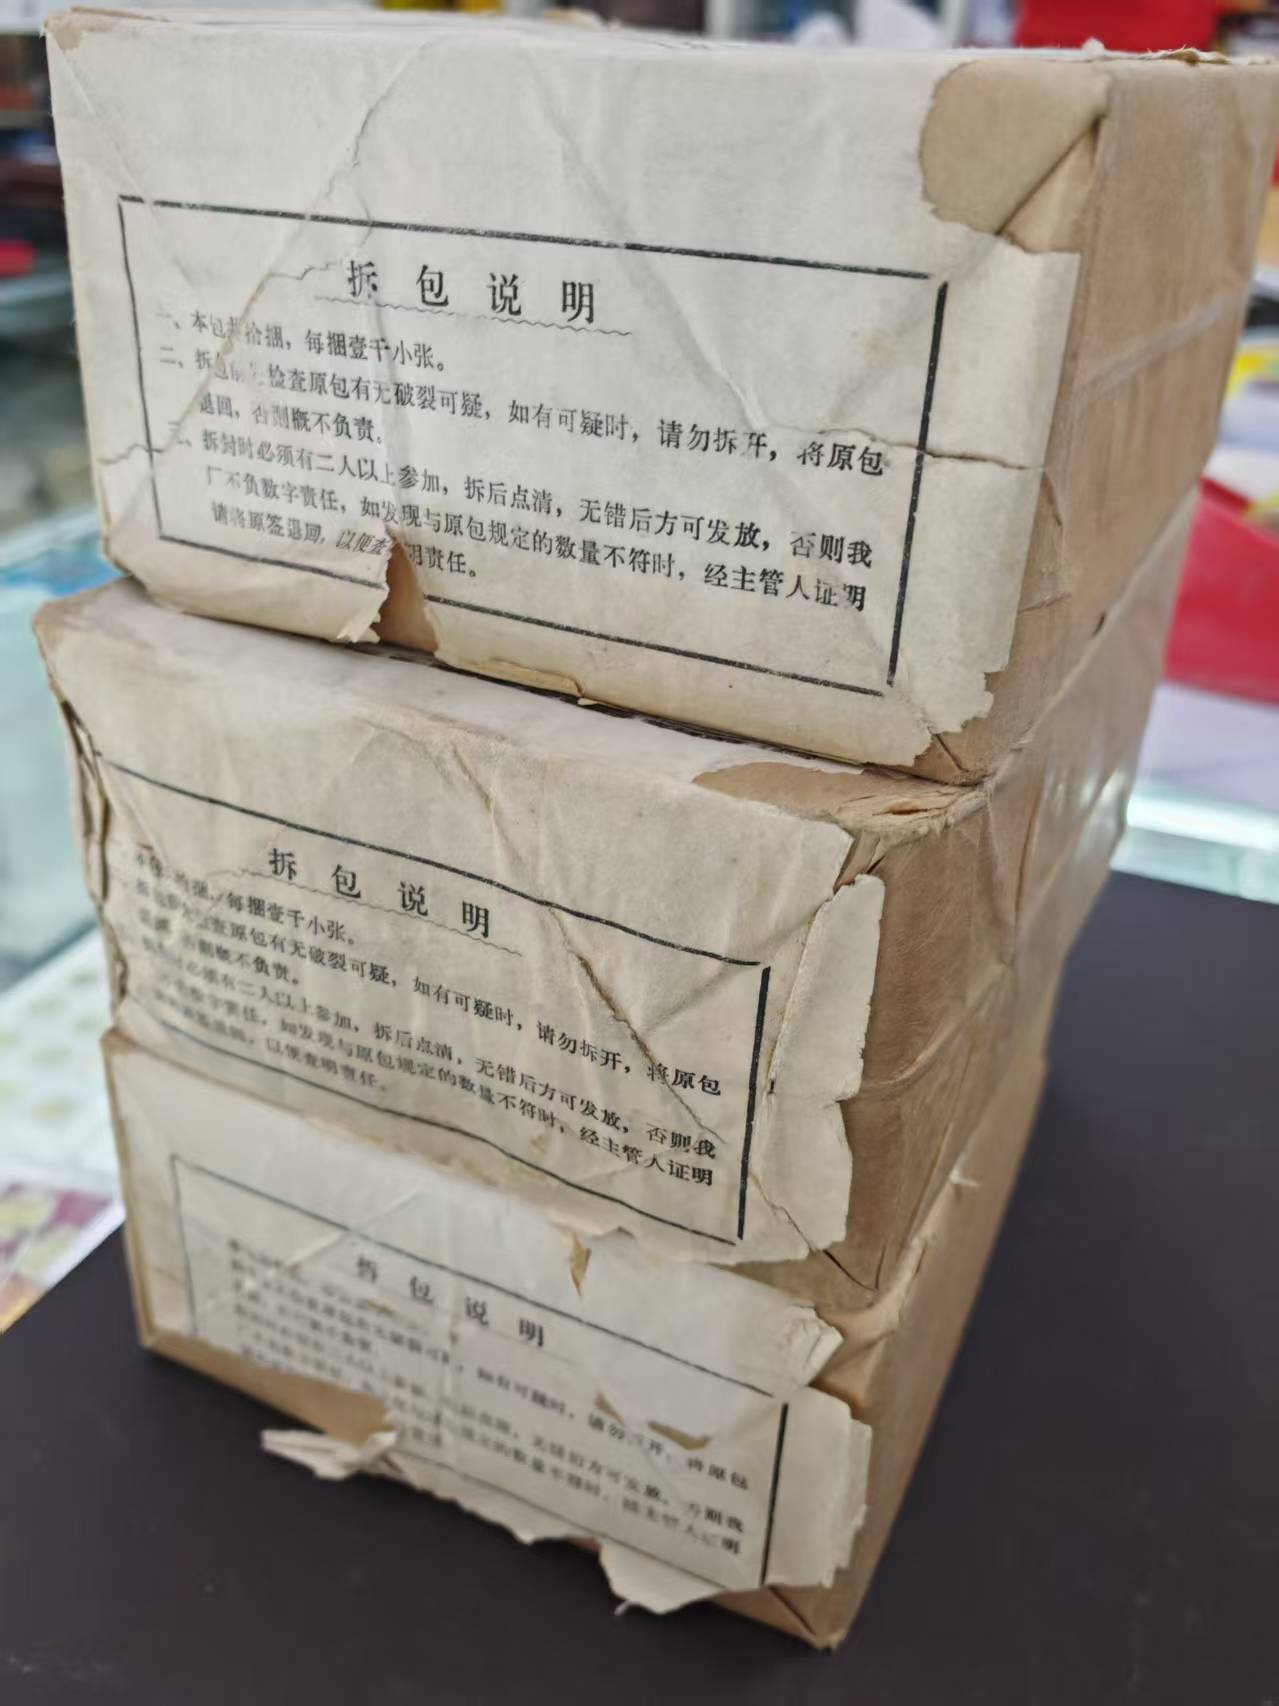 拆包说明
一、本包共拾捆，每捆壹千小张。
二、拆包前检查原包有无破裂可疑，如有可疑时，请勿拆开，将原包
退回，否则概不负责。
三、拆封时必须有二人以上参加，拆后点清，无错后方可发放，否则我
厂不负数字责任，如发现与原包规定的数量不符时，经主管人证明
请将原签退回，以便查明责任。
拆包说明
本包 拾捆，每捆壹千小张。
拆包 检查原包有无破裂可疑，如有可疑时，请勿拆开，将原包
退回，否则概不负责。
时必须有二人以上参加，拆后点清，无错后方可发放，否则我
数字责任，如发现与原包规定的数量不符时，经主管人证明
签退回，以便查明责任。
拆包说明
如有可疑时，请勿 开，将原包
无错后方可发放，否则我
的数量不符时，经主管人证明